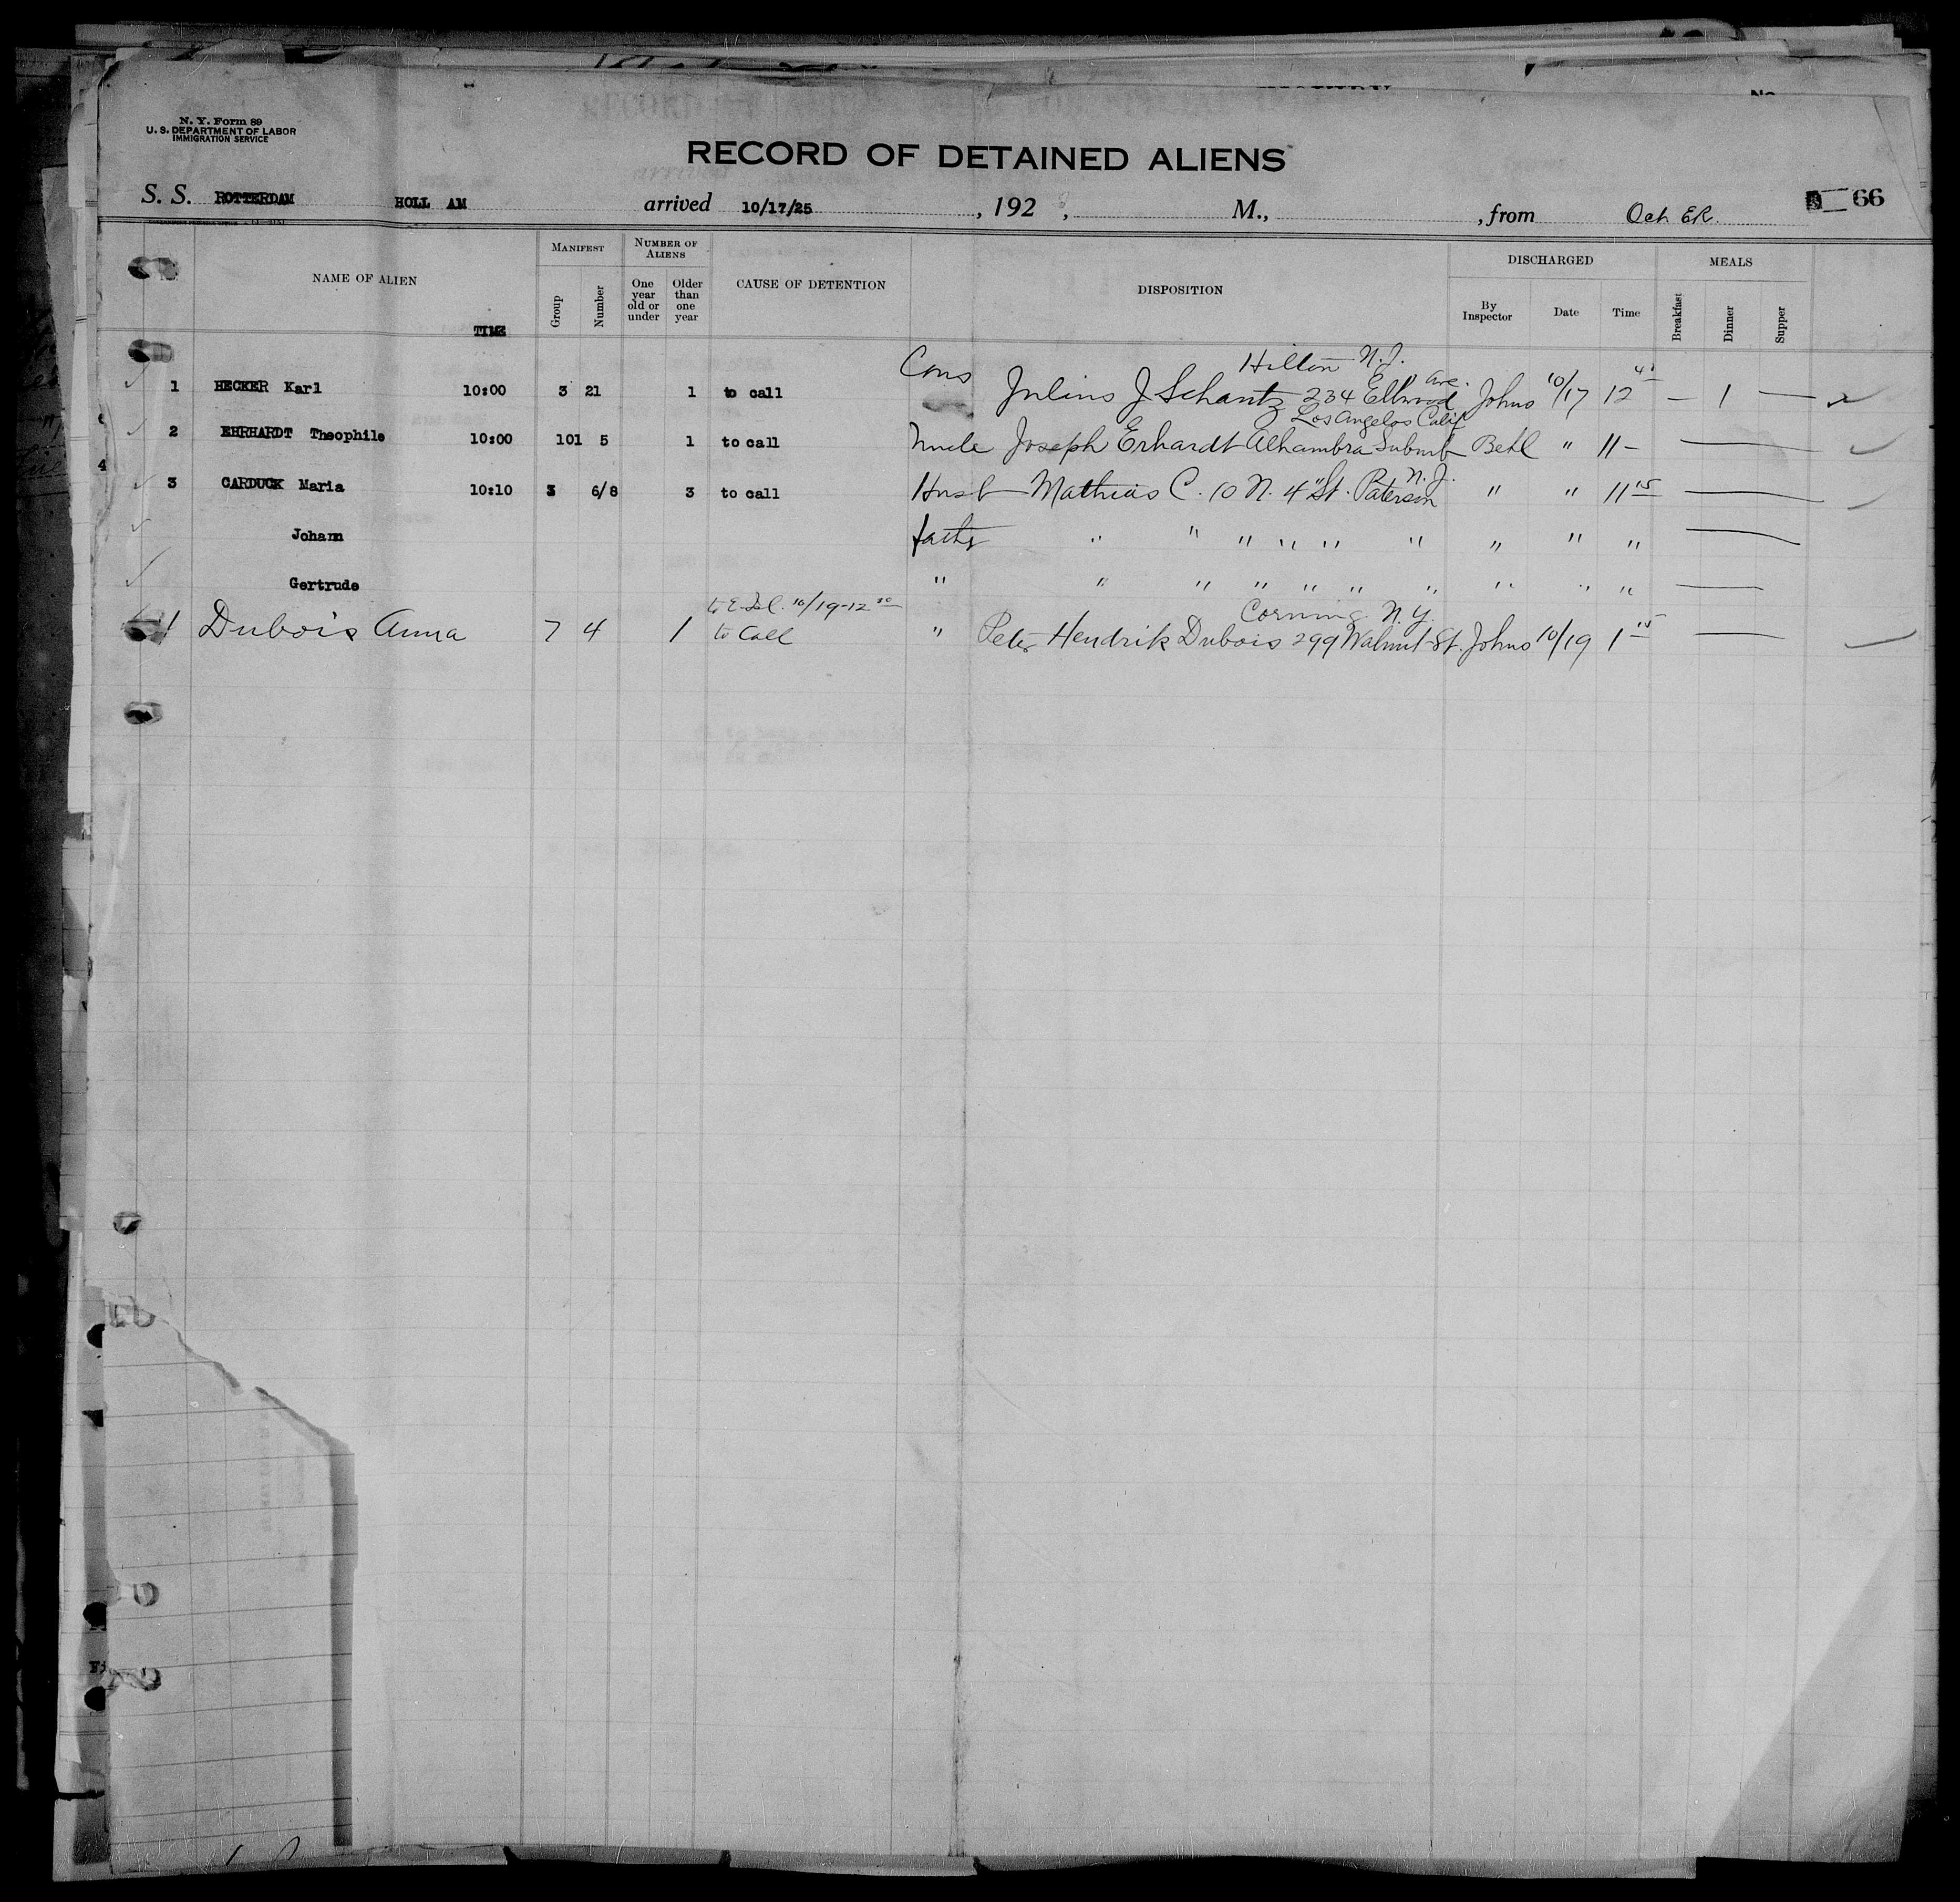 N. Y. Form 89
U. S. DEPARTMENT OF LABOR
IMMIGRATION SERVICE
RECORD OF DETAINED ALIENS
S. S. ROTTERDAM HOLL AM arrived 10/17/25, 192 , M., , from 66
NAME OF ALIEN TIME
MANIFEST
Group Number
NUMBER OF ALIENS
One year old or under
Older than one year
CAUSE OF DETENTION
DISPOSITION
DISCHARGED
By Inspector Date Time
MEALS
Breakfast Dinner Supper
Hilton N.J.
1 HECKER Karl 10:00 3 21 1 to call Cous Julius J Schantz 234 Ellwood Ave. Johns 10/17 12 45 — 1 —
Los Angelos Calif
2 EHRHARDT Theophile 10:00 101 5 1 to call Uncle Joseph Erhardt Alhambra Suburb Betl " 11 —
N.J.
3 CARDUCK Maria 10:10 3 6/8 3 to call Husb Mathias C. 10 N. 4" St. Paterson " " 11 15
Johann father " " " " " " " " "
Gertrude " " " " " " " " " "
10/19-12 30 Corning N.Y.
4 Dubois Anna 7 4 1 to Call " Peter Hendrik Dubois 299 Walnut St. Johns 10/19 1 15